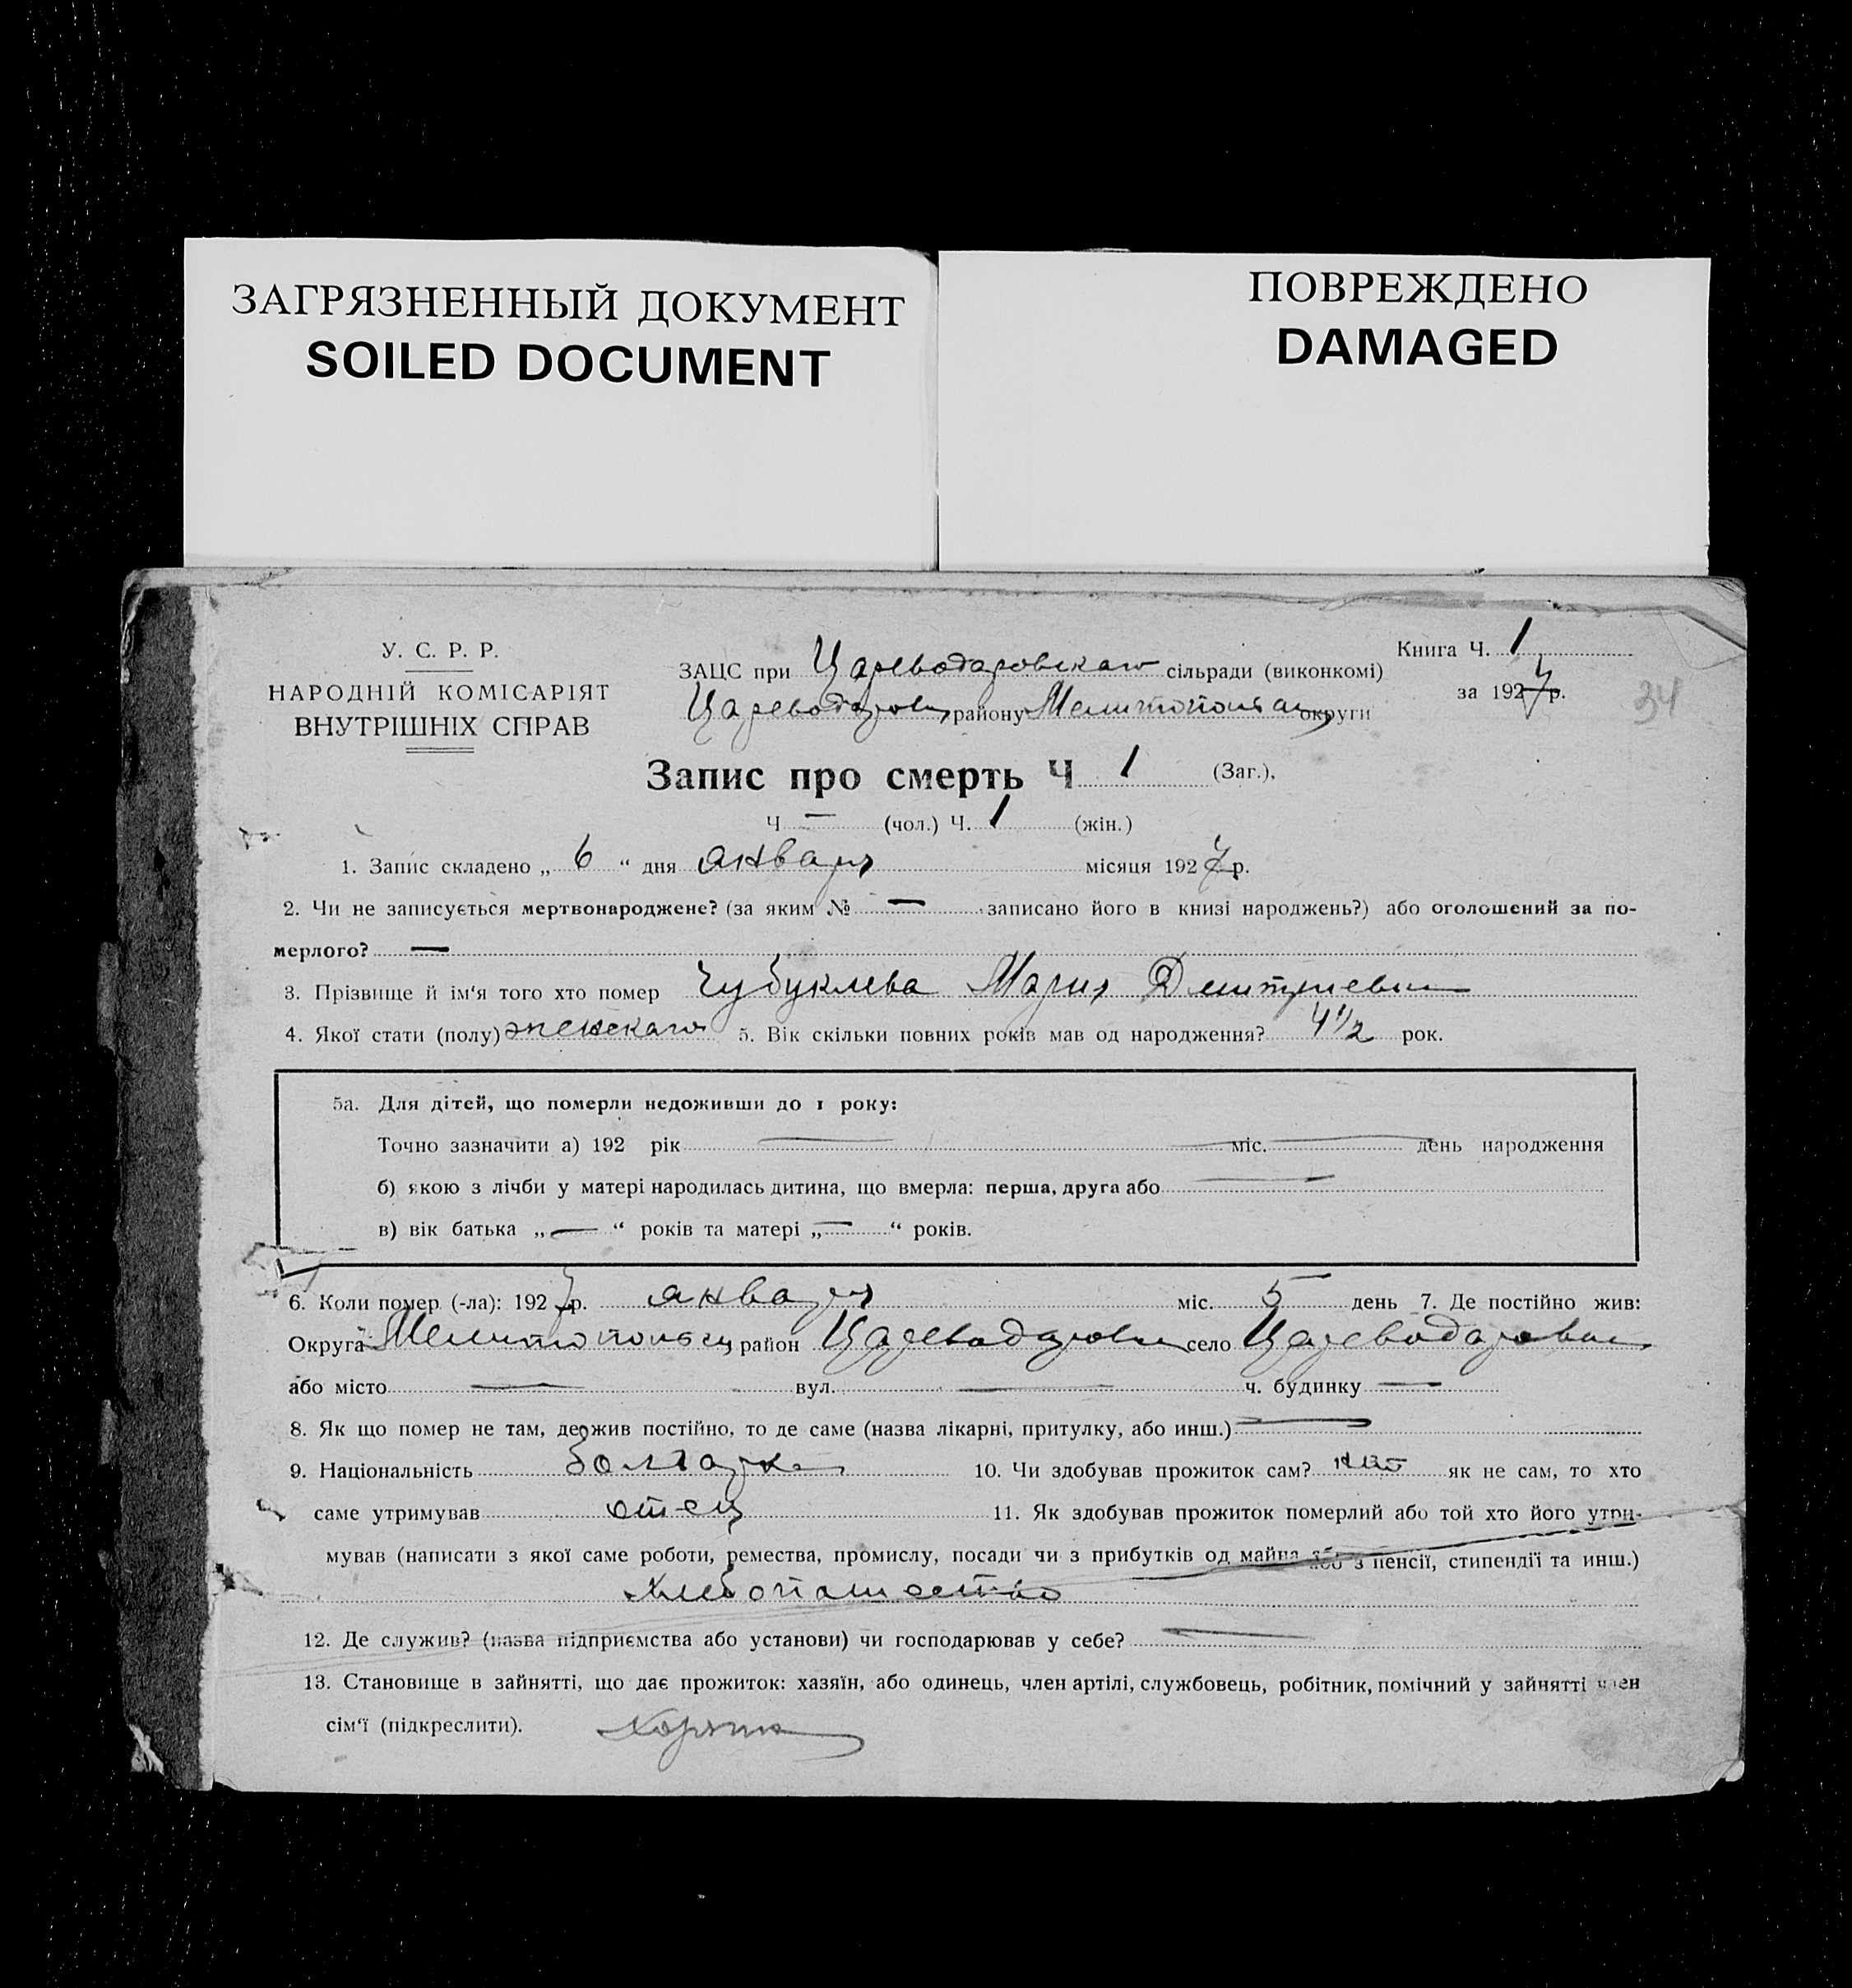 ЗАГРЯЗНЕННЫЙ ДОКУМЕНТ
SOILED DOCUMENT
ПОВРЕЖДЕНО
DAMAGED
У. С. Р. Р.
НАРОДНІЙ КОМІСАРІЯТ
ВНУТРІШНІХ СПРАВ
Книга Ч. 1
за 1927 р.
34
ЗАЦС при Цареводаровскаго сільради (виконкомі)
району округи
Запис про смерть Ч 1 (Заг.),
Ч — (чол.) Ч. 1 (жін.)
1. Запис складено „ 6 “ дня января місяця 1927 р.
2. Чи не записується мертвонароджене? (за яким № — записано його в книзі народжень?) або оголошений за по-
мерлого? —
3. Прізвище й ім‘я того хто помер Чубуклева Мария Дмитриевна
4. Якої стати (полу) женскаго 5. Вік скільки повних років мав од народження? 4 1/2 рок.
5а. Для дітей, що померли недоживши до 1 року:
Точно зазначити а) 192 рік — міс. — день народження
б) якою з лічби у матері народилась дитина, що вмерла: перша, друга або —
в) вік батька „ — “ років та матері „ — “ років.
6. Коли помер (-ла): 1927 р. января міс. 5 день 7. Де постійно жив:
Округа район село
або місто — вул. — ч. будинку —
8. Як що помер не там, де жив постійно, то де саме (назва лікарні, притулку, або инш.) —
9. Національність болгарка 10. Чи здобував прожиток сам? нет як не сам, то хто
саме утримував отец 11. Як здобував прожиток померлий або той хто його утри-
мував (написати з якої саме роботи, ремества, промислу, посади чи з прибутків од майна або з пенсії, стипендії та инш.)
хлебопашество
12. Де служив? (назва підприємства або установи) чи господарював у себе? —
13. Становище в зайнятті, що дає прожиток: хазяїн, або одинець, член артілі, службовець, робітник, помічний у зайнятті член
сім‘ї (підкреслити).